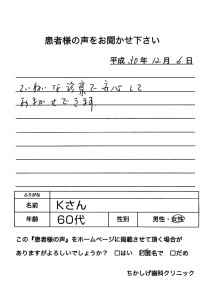 患者様の声をお聞かせ下さい
平成 30年 12月 6日
ていねいな診察で安心して
おまかせできます
ふりがな
名前 Kさん
年齢 60代 性別 男性・女性
この『患者様の声』をホームページに掲載させて頂く場合が
ありますがよろしいでしょうか? □はい ☑匿名で □だめ
ちかしげ歯科クリニック